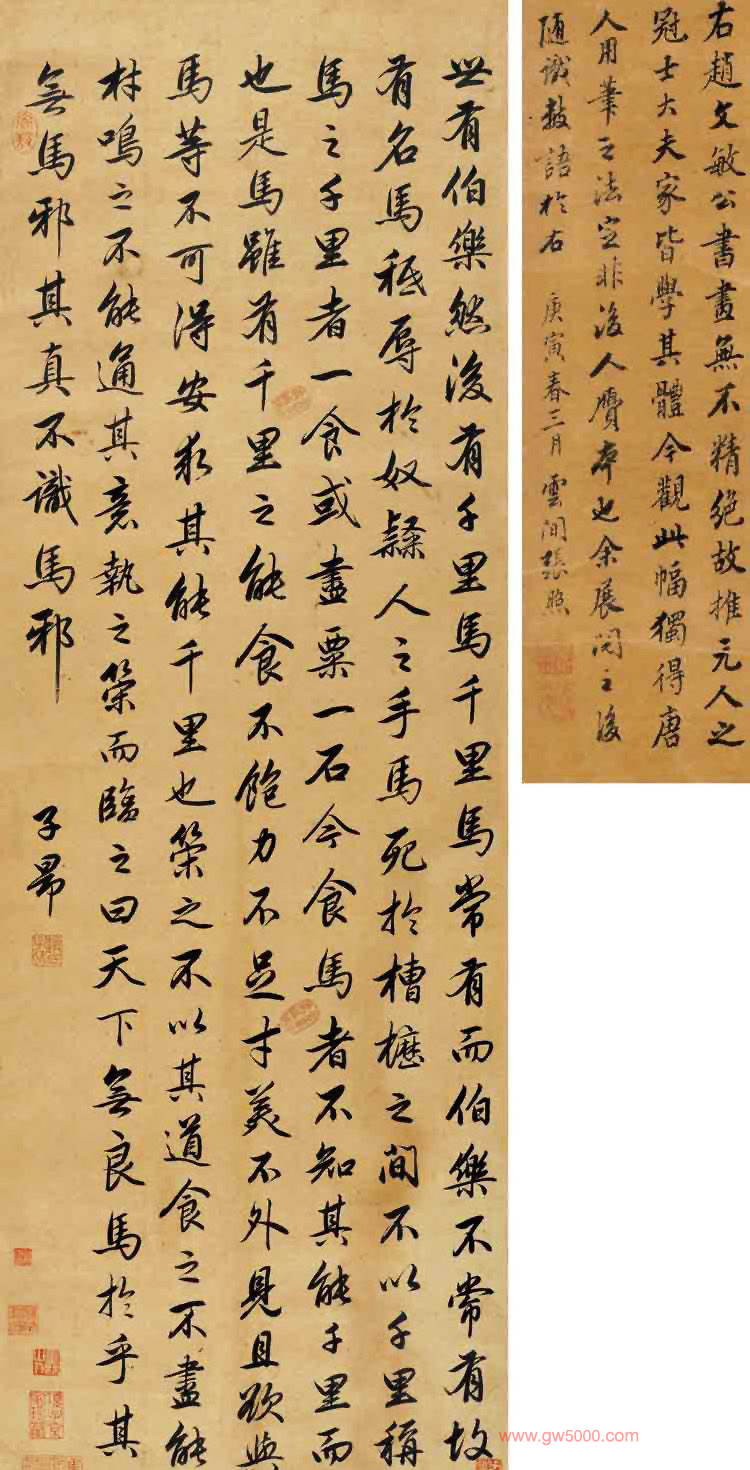 右趙文敏公書畫無不精絶故推元人之
冠士大夫家皆學其體今觀此幅獨得唐
人用筆之法定非後人贋本也余展閱之後
随識數語於右 庚寅春三月 雲間張照
世有伯樂然後有千里馬千里馬常有而伯樂不常有故
有名馬秪辱於奴隸人之手馬死於槽櫪之間不以千里稱
馬之千里者一食或盡粟一石今食馬者不知其能千里而
也是馬雖有千里之能食不飽力不足才美不外見且欲與
馬等不可得安求其能千里也策之不以其道食之不盡能
材鳴之不能通其意執之策而臨之曰天下無良馬於乎其
無馬邪其真不識馬邪
子昂
www.gw5000.com